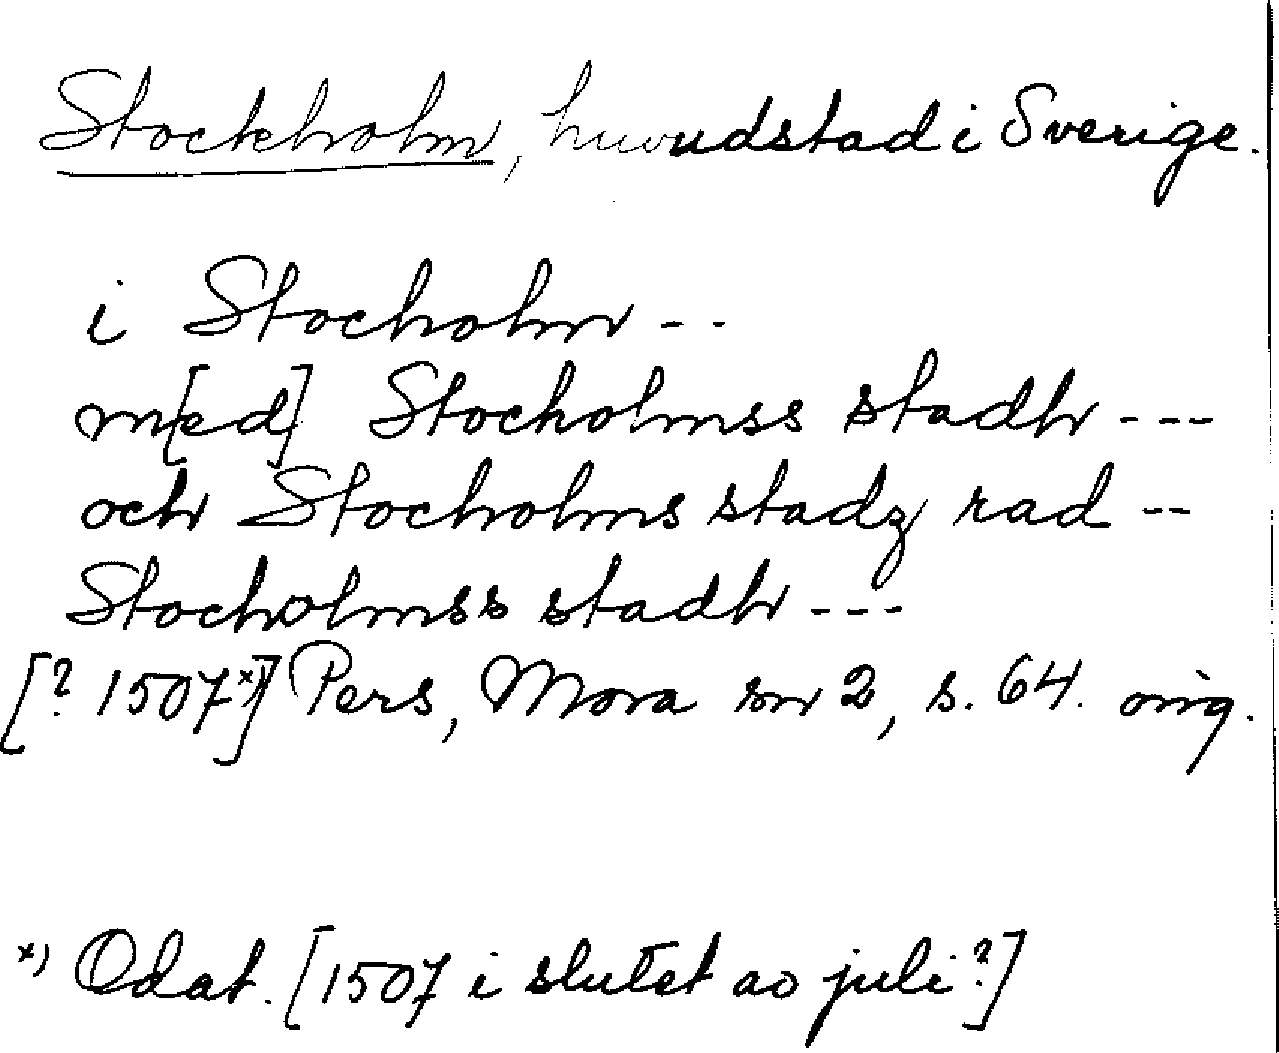 Stockholm, huvudstad i Sverige.
i Stocholm - -
m[ed] Stocholmss stadh - - -
och Stocholms stadz rad - -
Stocholmss stadh - - -
[? 1507*)] Pers, Mora sn 2, s. 64. orig.
*) Odat. [1507 i slutet av juli?]